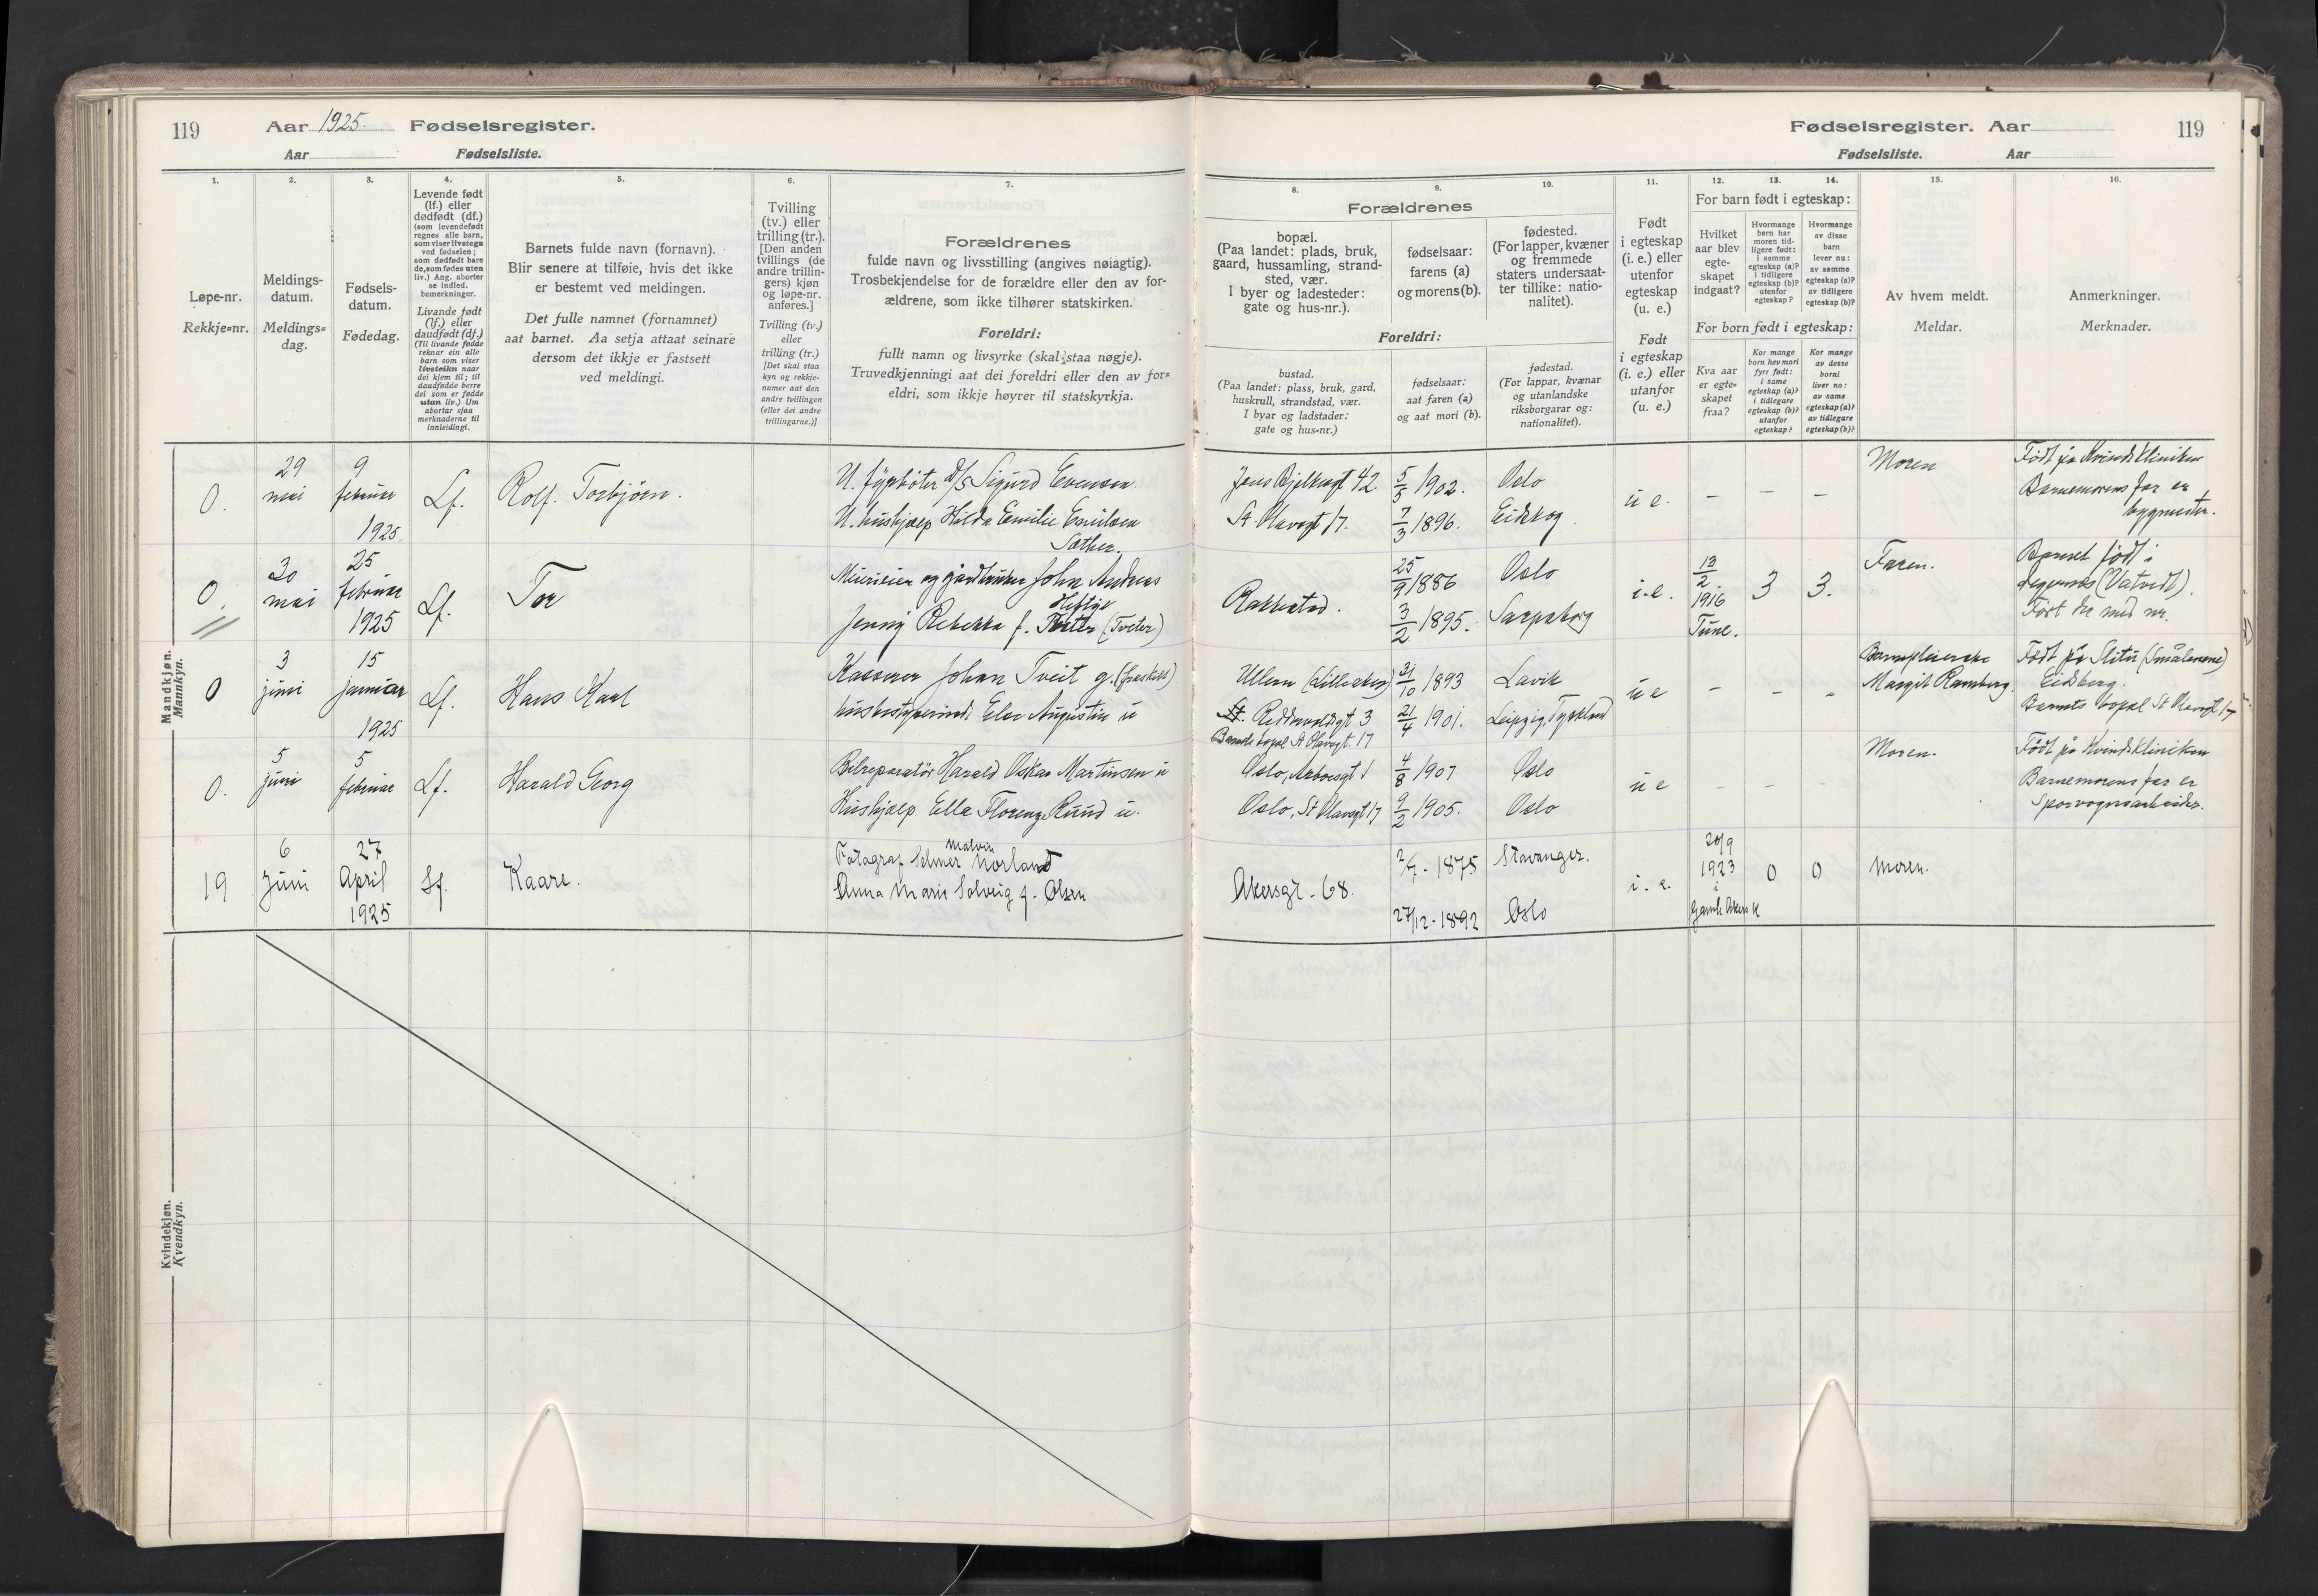 119
Aar 1925. Fødselsregister.
Aar Fødselsliste.
1.
2.
3.
4.
5.
6.
7.
Løpe-nr.
Rekkje=nr.
Meldings-
datum.
Meldings=
dag.
Fødsels-
datum.
Fødedag.
Levende født
(lf.) eller
dødfødt (df.)
(som levendefødt
regnes alle barn,
som viser livstegn
ved fødselen;
som dødfødt bare
de, som fødes uten
liv.) Ang. aborter
se indled.
bemerkninger.
Livande født
(lf.) eller
daudfødt (df.)
(Til livande fødde
reknar ein alle
barn som viser
livsteikn naar
dei kjem til; til
daudfødde berre
dei som er fødde
utan liv.) Um
abortar sjaa
merknaderne til
innleidingi.
Barnets fulde navn (fornavn).
Blir senere at tilføie, hvis det ikke
er bestemt ved meldingen.
Det fulle namnet (fornamnet)
aat barnet. Aa setja attaat seinare
dersom det ikkje er fastsett
ved meldingi.
Tvilling
(tv.) eller
trilling (tr.).
[Den anden
tvillings (de
andre trillin-
gers) kjøn
og løpe-nr.
anføres.]
Tvilling (tv.)
eller
trilling (tr.)
[Det skal staa
kyn og rekkje-
numer aat den
andre tvillingen
(eller dei andre
trillingarne.)]
Forældrenes
fulde navn og livsstilling (angives nøiagtig).
Trosbekjendelse for de forældre eller den av for-
ældrene, som ikke tilhører statskirken.
Foreldri:
fullt namn og livsyrke (skal staa nøgje).
Truvedkjenningi aat dei foreldri eller den av for=
eldri, som ikkje høyrer til statskyrkja.
Mandkjøn.
Mannkyn.
0.
29
mai
9
februar
1925
Lf.
Rolf. Torbjörn.
U. fyrböter D/S Sigurd Evensen
U. hushjælp Hilda Emilie Emilsen
Sæther.
0.
30
mai
25
februar
1925
Lf.
Tor
Murmester og gårdbruker John Andreas
Heftye
Jenny Rebekka f. (Tveter)
0
3
juni
15
januar
1925
Lf.
Hans Karl
Kasserer Johan Tveit g. (fraskilt)
husbestyrerinde Else Augustin u
0.
5
juni
5
februar
Lf.
Harald Georg
Bilreparatör Harald Oskar Martinsen u
Hushjælp Ella Florenze Ruud u.
19
6
Juni
27
April
1925
Lf.
Kaare.
Malvin
Fotograf Selmer Norland
Anna Marie Solveig f. Olsen
Kvindekjøn.
Kvendkyn.
Fødselsregister. Aar
119
Fødselsliste. Aar
8.
9.
10.
11.
12.
13.
14.
15.
16.
Forældrenes
bopæl.
(Paa landet: plads, bruk,
gaard, hussamling, strand-
sted, vær.
I byer og ladesteder:
gate og hus-nr.).
fødselsaar:
farens (a)
og morens (b).
fødested.
(For lapper, kvæner
og fremmede
staters undersaat-
ter tillike: natio-
nalitet).
Foreldri:
bustad.
(Paa landet: plass, bruk, gard,
huskrull, strandstad, vær.
I byar og ladstader:
gate og hus=nr.)
fødselsaar:
aat faren (a)
og aat mori (b).
fødestad.
(For lappar, kvænar
og utanlandske
riksborgarar og:
nationalitet).
Født
i egteskap
(i. e.) eller
utenfor
egteskap
(u. e.)
Født
i egteskap
(i. e.) eller
utanfor
(u. e.)
For barn født i egteskap:
Hvilket
aar blev
egte-
skapet
indgaat?
Hvormange
barn har
moren tid-
ligere født:
i samme
egteskap (a)?
i tidligere
egteskap (b)?
utenfor
egteskap?
Hvormange
av disse
barn
lever nu:
av samme
egteskap (a)?
av tidligere
egteskap (b)?
For born født i egteskap:
Kva aar
er egte=
skapet
fraa?
Kor mange
born hev mori
fyrr født:
i same
egteskap (a)?
i tidlegare
egteskap (b)?
utanfor
egteskap?
Kor mange
av desse
borni
liver no:
av same
egteskap (a)?
av tidlegare
egteskap (b)?
Av hvem meldt.
Meldar.
Anmerkninger.
Merknader.
Jens Bjelkesgt 42.
5/5 1902.
Oslo
St. Olavsgt 17.
7/3 1896.
Eidskog
u e.
–
–
–
Moren
Født på Kvindeklinikken
Barnemorens far er
bygmester.
Rakkestad.
25/9 1886
Oslo
3/2 1895.
Sarpsborg
i.e.
13/2
1916
Tune.
3
3.
Faren.
Barnet født i
(Vatvedt).
Ullern (Lilleaker)
31/10 1893
Lavik
3
21/4 1901.
Leipzig, Tyskland
Barnets bopæl St Olavsgt. 17
u e
–
–
-
Barnepleierske
Margit Ramberg.
Født på Slitu (Smålenene)
Eidsberg.
Barnets bopæl St Olavsgt 17
Oslo, 1
4/8 1907
Oslo
Oslo, St Olavsgt 17
9/2 1905.
Oslo
u e
–
–
–
Moren.
Født på Kvindeklinikken
Barnemorens far er
Sporvognsarbeider.
Akersgt. 68.
1875
Stavanger.
27/12 - 1892
Oslo
i. e.
20/9
1923
i
Gamle Akers K
0
0
Moren.